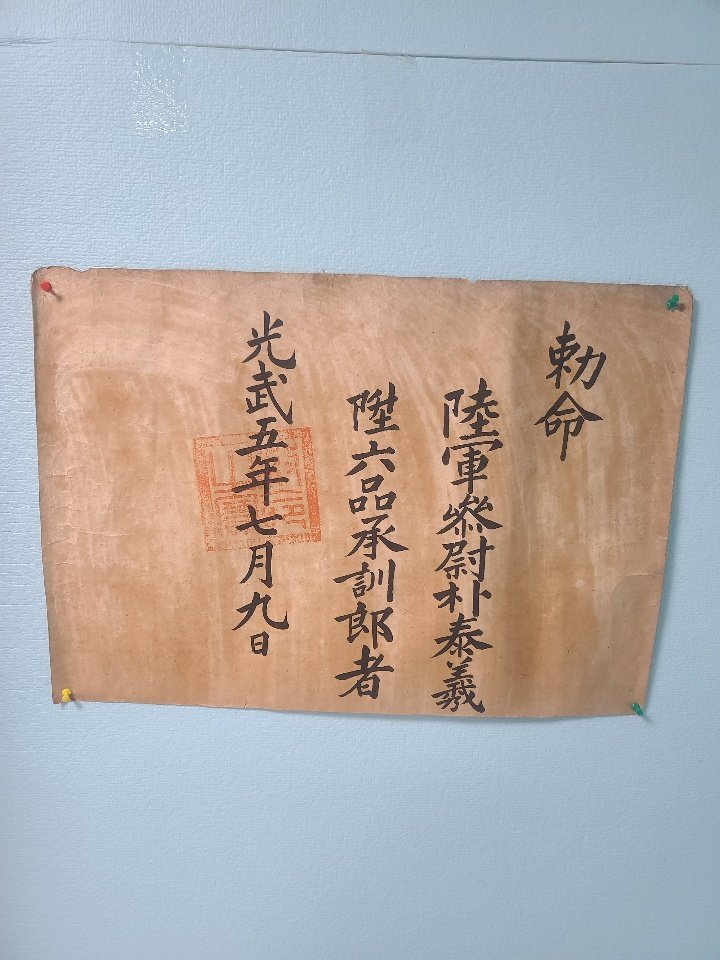 勅命
陸軍參尉朴泰羲
陞六品承訓郎者
光武五年七月九日